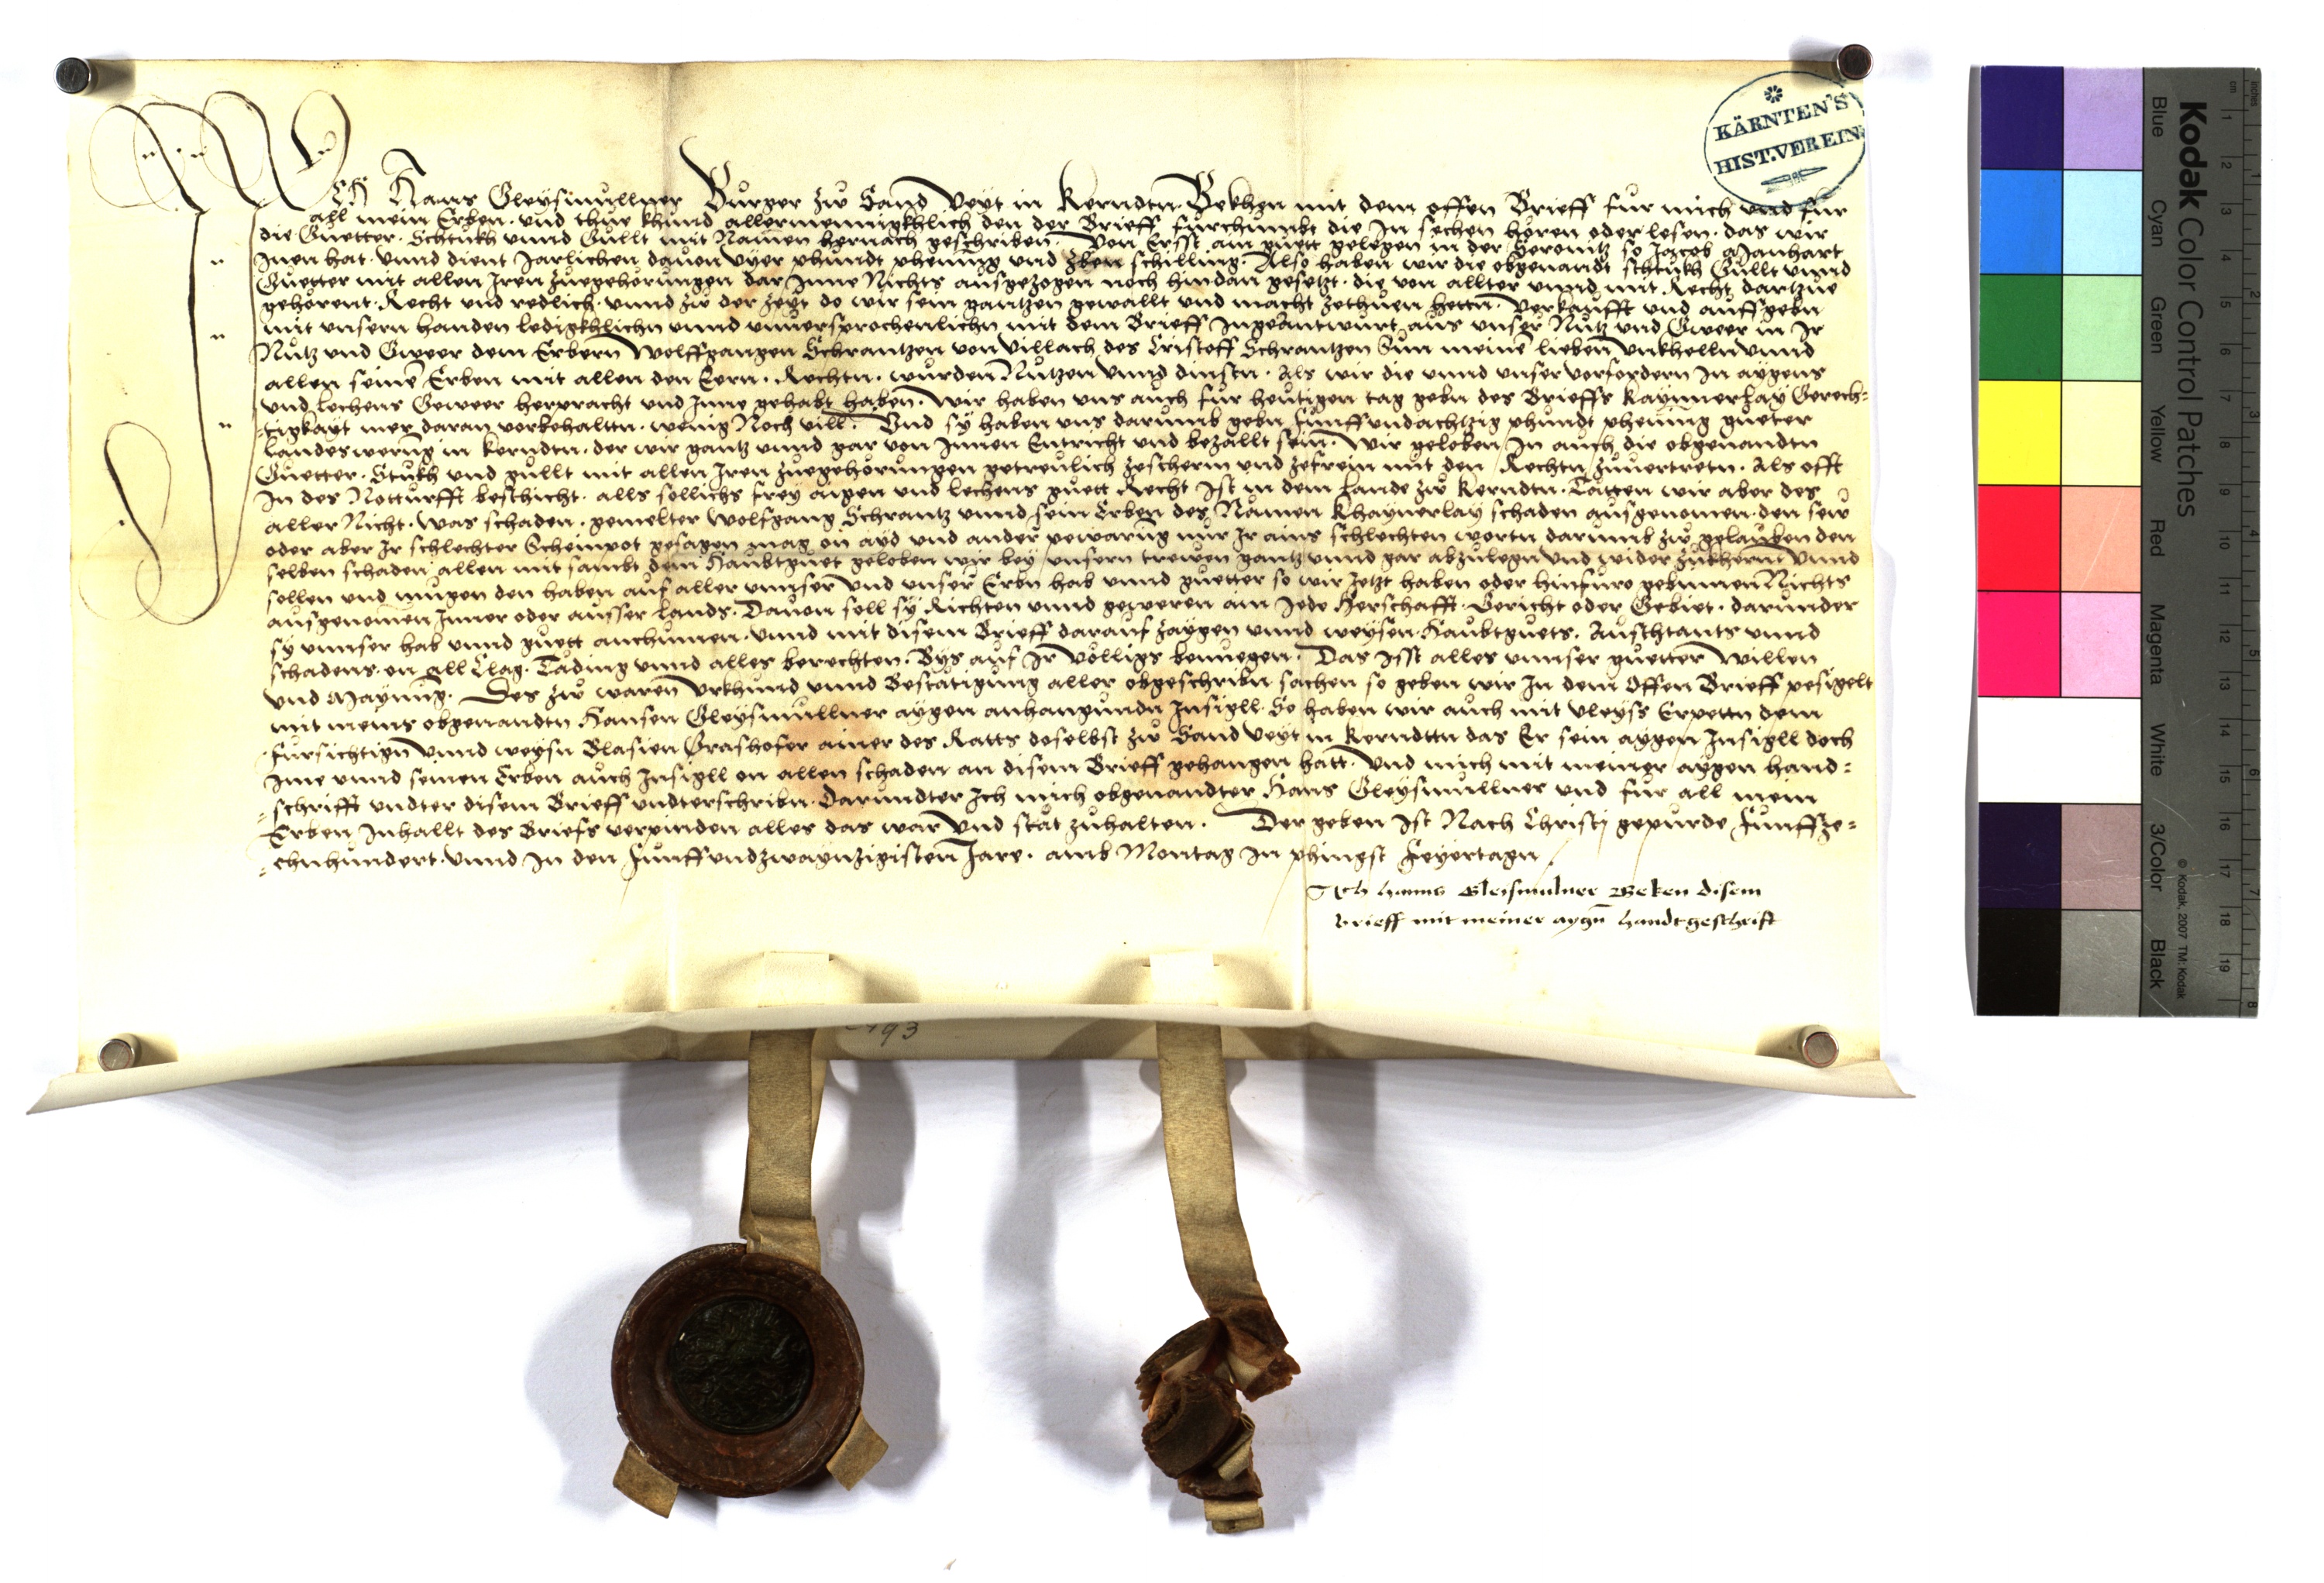 KÄRNTEN'S
HIST. VEREIN
Ich Hans Gleysmullner Burger zw Sand Veyt in Kerndtn. Bekhen mit dem offen Brieff fur mich vnd fur
all mein Erben. vnd thue khund allermennigkhlich den der Brieff furchumbt die In sechen hören oder lesen. das wir
die Guetter. Schtukh vnnd Gullt mit Namen hernach geschriben. Von Ersst am guett gelegen in der so Jacob Manhart
Inen hat. vnnd dient Jarlichen dauon vyer phundt phening vnd schilling. Also haben wir die obgenandt schtukh Gullt vnnd
Guetter mit allen Iren zuegehorungen dar Inne Nichts ausgezogen noch hindan gesetzt. die von allter vnnd mit Recht dartzue
gehörent. Recht vnd redlich. vnnd zw der zeyt do wir sein gantzen gewallt vnd macht zethuen hettn. Verkaufft vnd auffgebn
mit vnsern handen ledigkhlichn vnnd vnuersprochenlichn mit dem Brieff Ingeantwurt aus vnser Nutz vnd Gweer in Ir
Nutz vnd Gweer dem Erbern Wolffgangen Schrantzen von Villach des Cristoff Schrantzen Sun meinē lieben vnnd
allen seinē Erben mit allen den Eern. Rechtn. wurden Nutzen vnnd dinstn. Als wir die vnnd vnser vorfordern In aygens
vnd lechens Geweer herpracht vnd Inne gehabt haben. Wir haben vns auch fur heutigen tag gebn des Brieffs kaynnerlay Gerech-
-tigkayt mer daran vorbehalltn. wenig Noch vill. Vnd sy haben vns darumb gebn Funffvndachtzig phundt phening gueter
Landeswerung in kerndtn. der wir gantz vnnd gar von Innen Entricht vnd bezallt sein. Wir geloben In auch die obgenandtn
Guetter. Stukh vnd gullt mit allen Iren zuegehorungen getreulich zescherm vnd zefrein mit den Rechtn zuuertretn. Als offt
In des Notturfft beschicht. alls sollichs frey aigen vnd lechens guett Recht Ist in dem Lande zw kerndtn. Tätten wir aber des
aller Nicht. was schaden. gemelter Wolfgang Schrantz vnnd sein Erben des Namen khaynerlay schaden ausgenomen. den sew
oder aber Ir schlechter Scheinpot gesagen mag on ayd vnd ander pewarūg nur Ir ains schlechten wortn darumb zw gelauben den
selben schaden allen mit sambt dem Haubtguet geloben wir bey vnsern trewen gantz vnnd gar abzulegn vnd wider zukhern vnnd
sollen vnd mugen den haben auf aller vnnser vnd vnser Erbn hab vnnd guetter so wir Jetzt haben oder hinfuro gebinnen Nichts
ausgenomen Inner oder ausser Lands. Dauon soll sy Richten vnnd geweren ain Jede Herschafft. Gericht oder Gebiet. darunder
sy vnnser hab vnnd guett anchumen. vnnd mit disem Brieff darauf zaygen vnnd weysen. Haubtguets. Anschtants vnnd
schadens. on all Clag. Täding vnnd alles berechten. Bys auf Ir völligs benuegen. Das Isst alles vnnser guetter Willen
vnd Maynūg. Des zw waren vrkhund vnnd Bestätigung aller obgeschribn sachen so geben wir In dem Offen Brieff pesigelt
mit meins obgenandtn Hansen Gleysmullner aygen anhangundn Insigll. So haben wir auch mit vleyss Erpettn dem
fursichtign vnnd weysn Blasien Grashofer ainer des Ratts doselbst zw Sand Veyt in kerndttn das Er sein aygen Insigll doch
Ime vnnd seinen Erben auch Insigll on allen schaden an disem Brieff gehangen hatt. Vnd mich mit meiner aygen hand-
-schrifft vndter disem Brieff vndterschribn. Darundter Ich mich obgenandter Hans Gleysmullner vnd fur all mein
Erben Inhallt des Briefs verpinden alles das war vnd stät zuhalten. Der geben Ist Nach Christj gepurde Funffze-
-chnhundert. vnnd In den Funffvndzwaynzigisten Jare. amb Montag In phingst Feyertagn
Ich hanns Gleismulner Beken disem
brieff mit meiner aygn̄ handtgeschrift
Kodak Color Control Patches
Blue Cyan Green Yellow Red Magenta White 3/Color Black
© Kodak, 2007 TM: Kodak
cm 1 2 3 4 5 6 7 8 9 10 11 12 13 14 15 16 17 18 19
inches 1 2 3 4 5 6 7 8